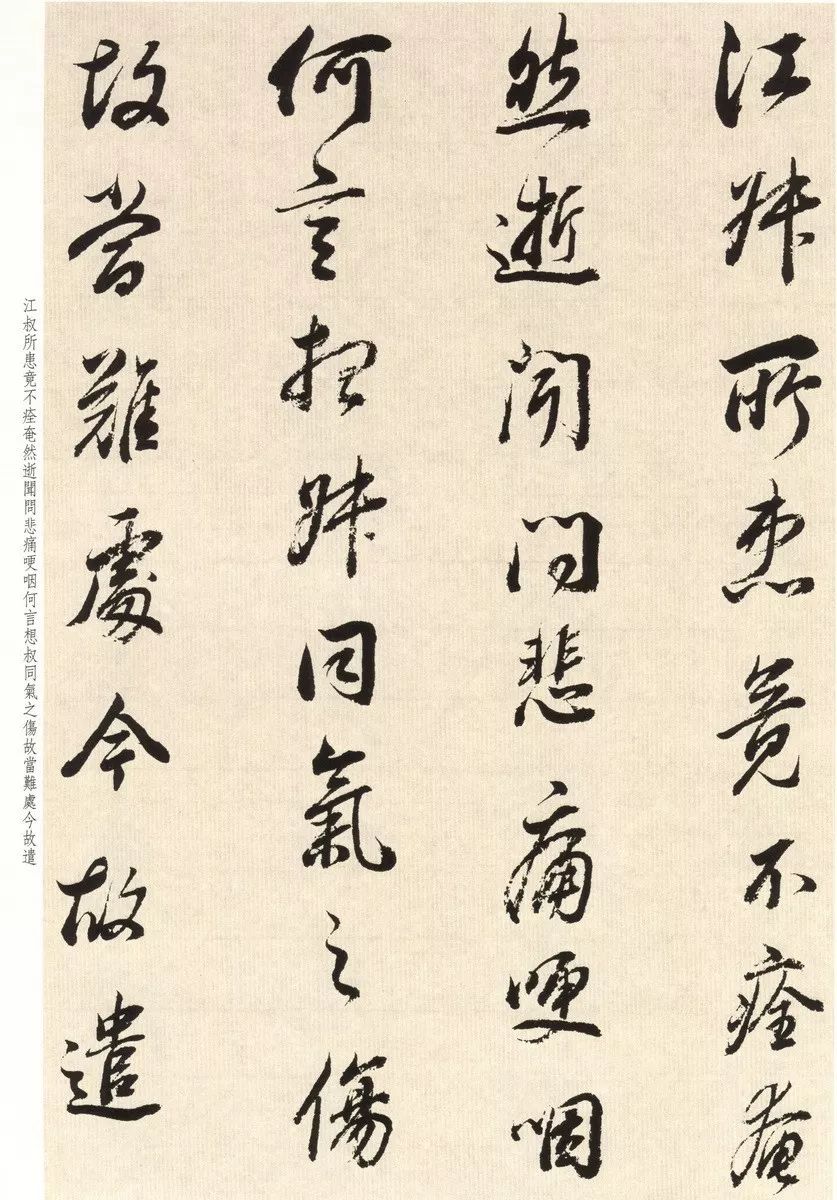 江叔所患竟不痊奄
然逝聞問悲痛哽咽
何言想叔同氣之傷
故當難處今故遣
江叔所患竟不痊奄然逝聞問悲痛哽咽何言想叔同氣之傷故當難處今故遣